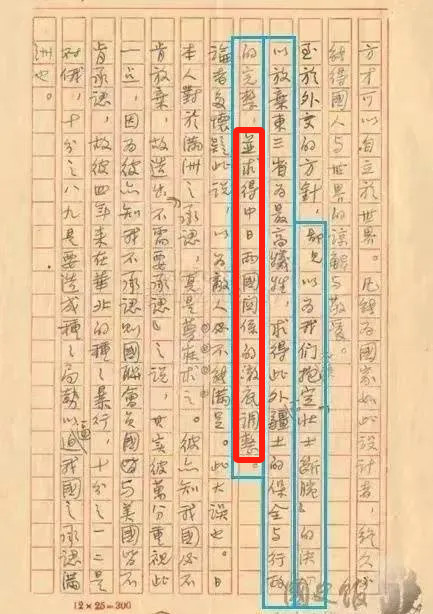 方才可以自立於世界。凡能為國家如此設計者,終久必
能得國人与世界的諒解与敬愛。
至於外交的方針,鄙見以為我們抱定「壯士斷腕」的決
以放棄東三省為最高犧牲,求得此外疆土的保全与行政
的完整,並求得中日兩國関係的澈底調整。
論者多懷疑此說,以為敵人必不能滿足。此大誤也。日
本人對於滿洲之承認,真是夢寐求之。彼亦知我國必不
肯放棄,故造出「不需要承認」之說,其实彼萬分重視此
一点,因為彼亦知我不承認則國聯會員國皆与美國皆不
肯承認,故彼四年來在華北的種種暴行,十分之一二是
对俄,十分之八九是要造成種種局勢以逼我國之承認滿
洲也。
12×25=300